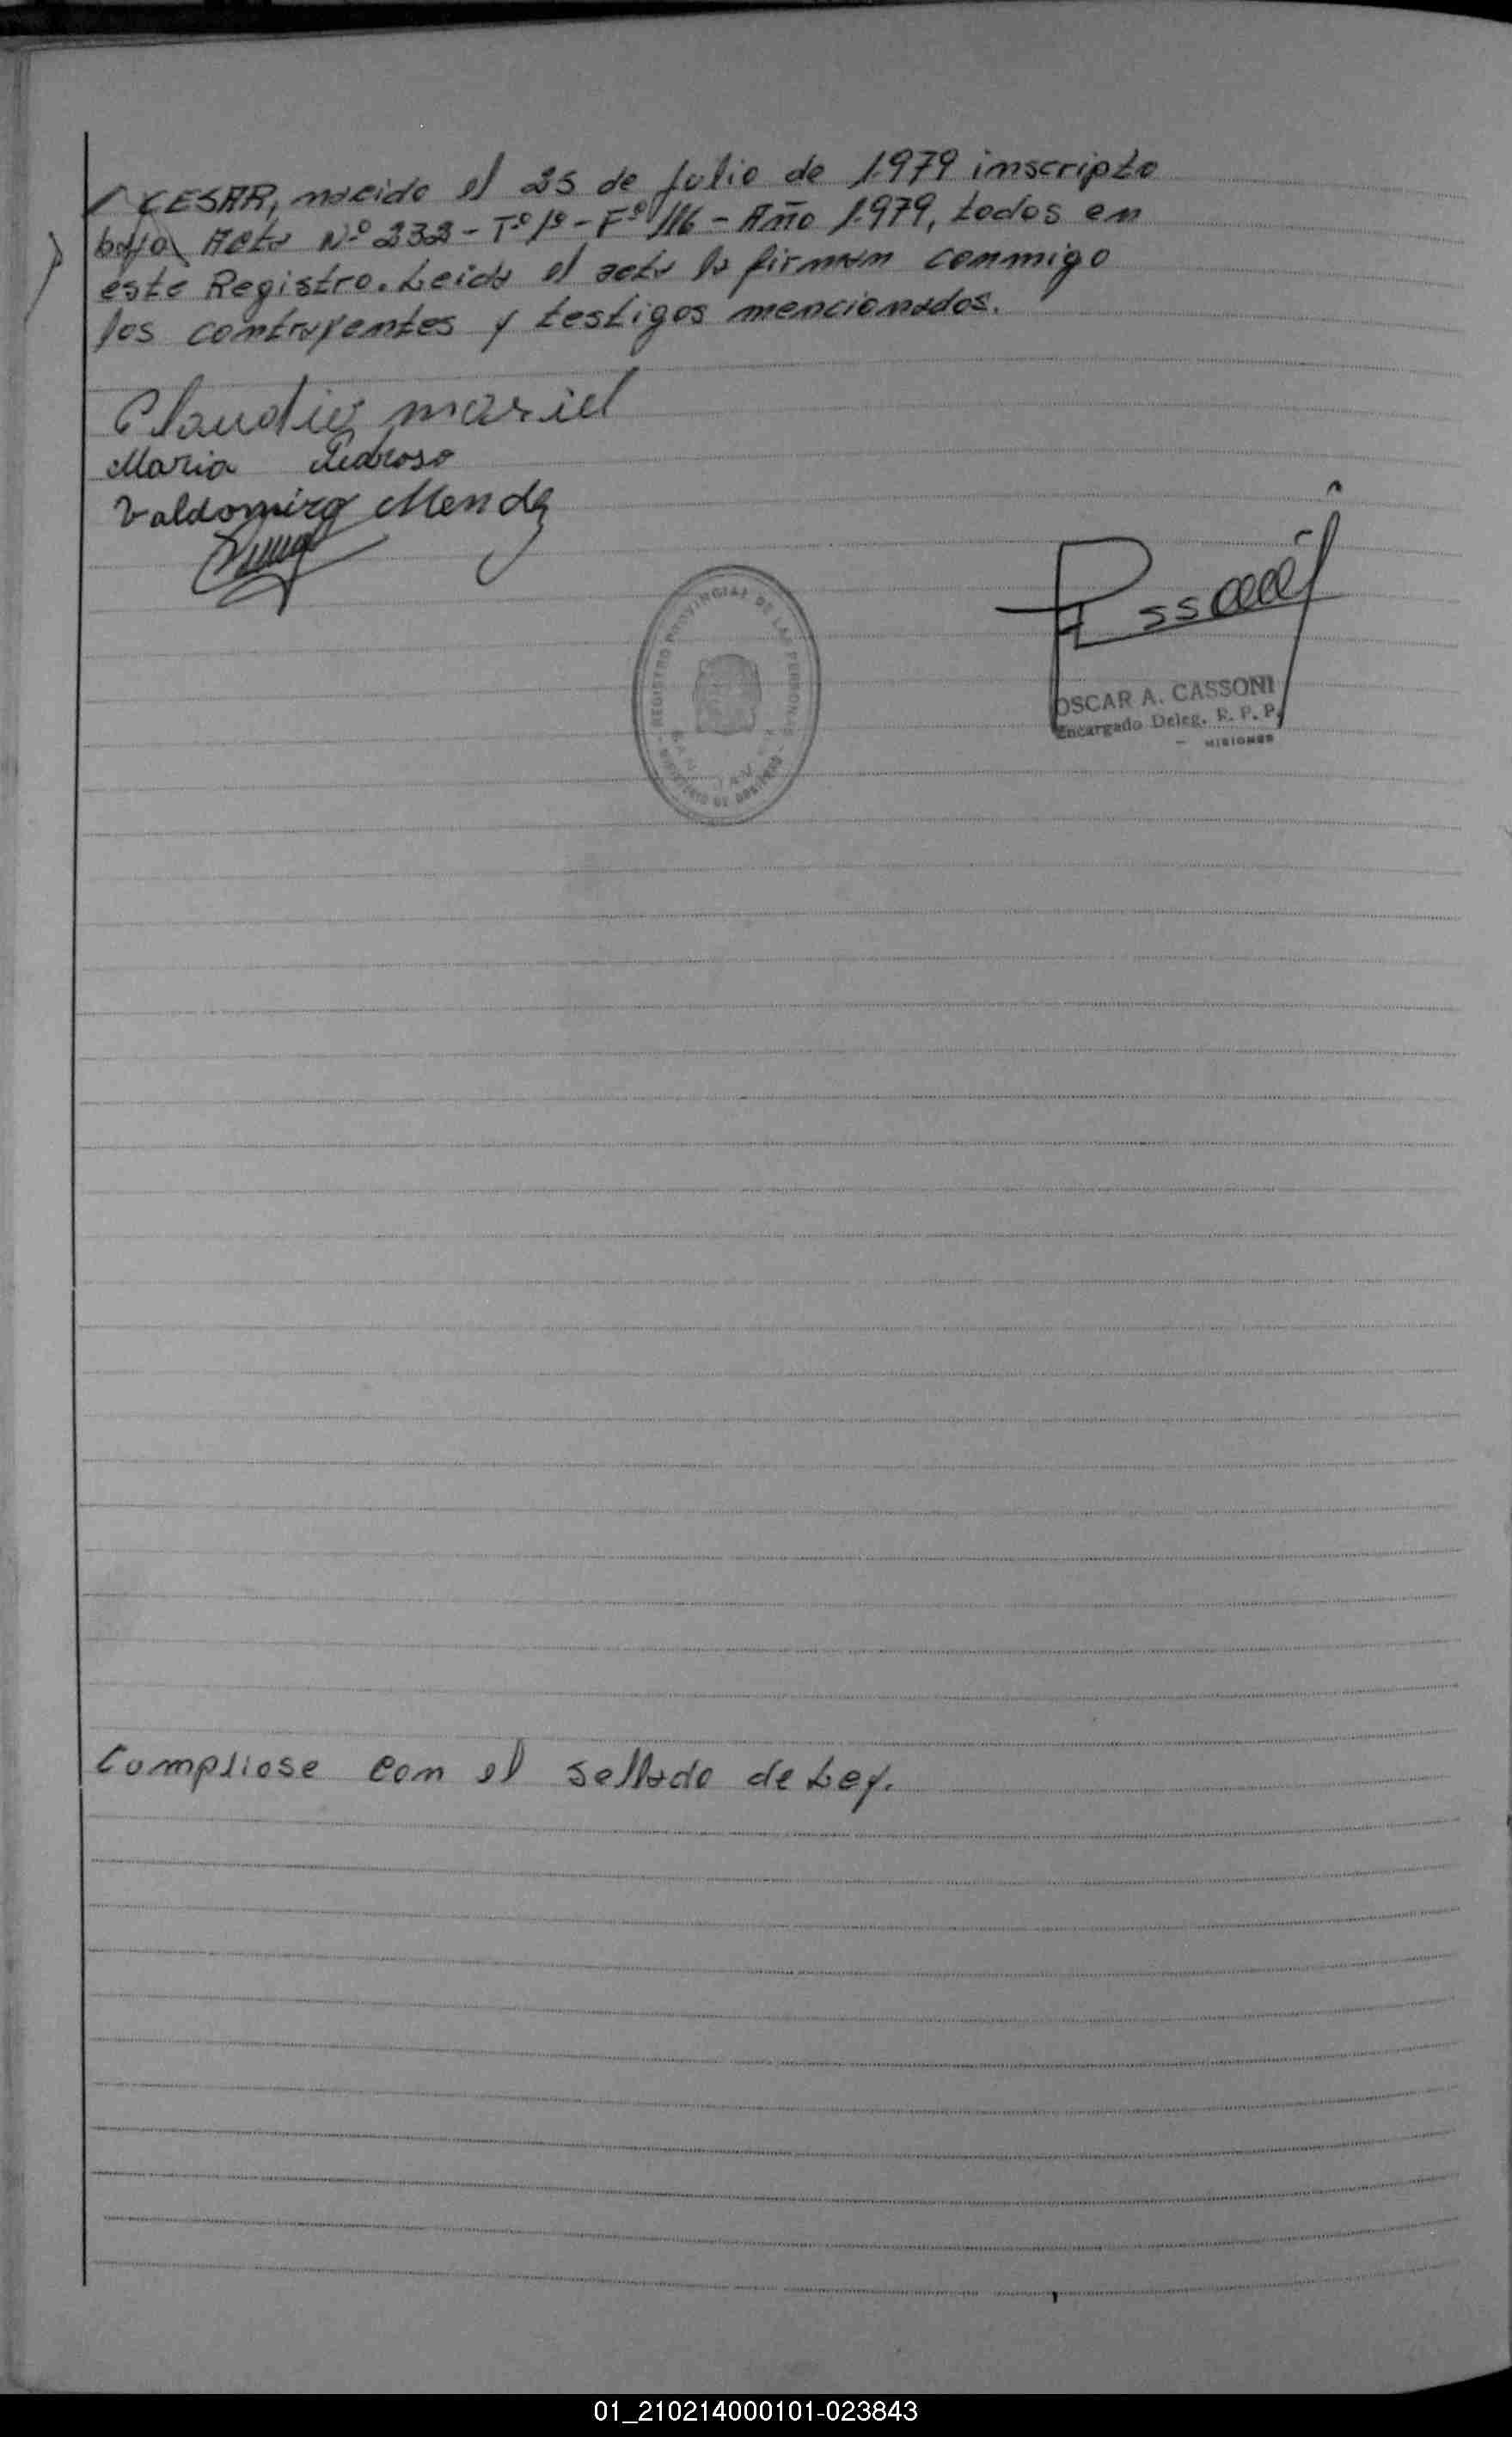 CESAR, nacido el 25 de Julio de 1.979 inscripto
bajo Acta Nº 232 - Tº 1º - Fº 116 - Año 1.979, todos en
este Registro. Leida el acta la firman conmigo
los contrayentes y testigos mencionados.
Claudio mariel
Maria Pedroso
Valdomiro Mendez
REGISTRO PROVINCIAL DE LAS PERSONAS
MINISTERIO DE GOBIERNO
OSCAR A. CASSONI
Encargado Deleg. R. P. P.
MISIONES
Cumpliose con el sellado de Ley.
01_210214000101-023843